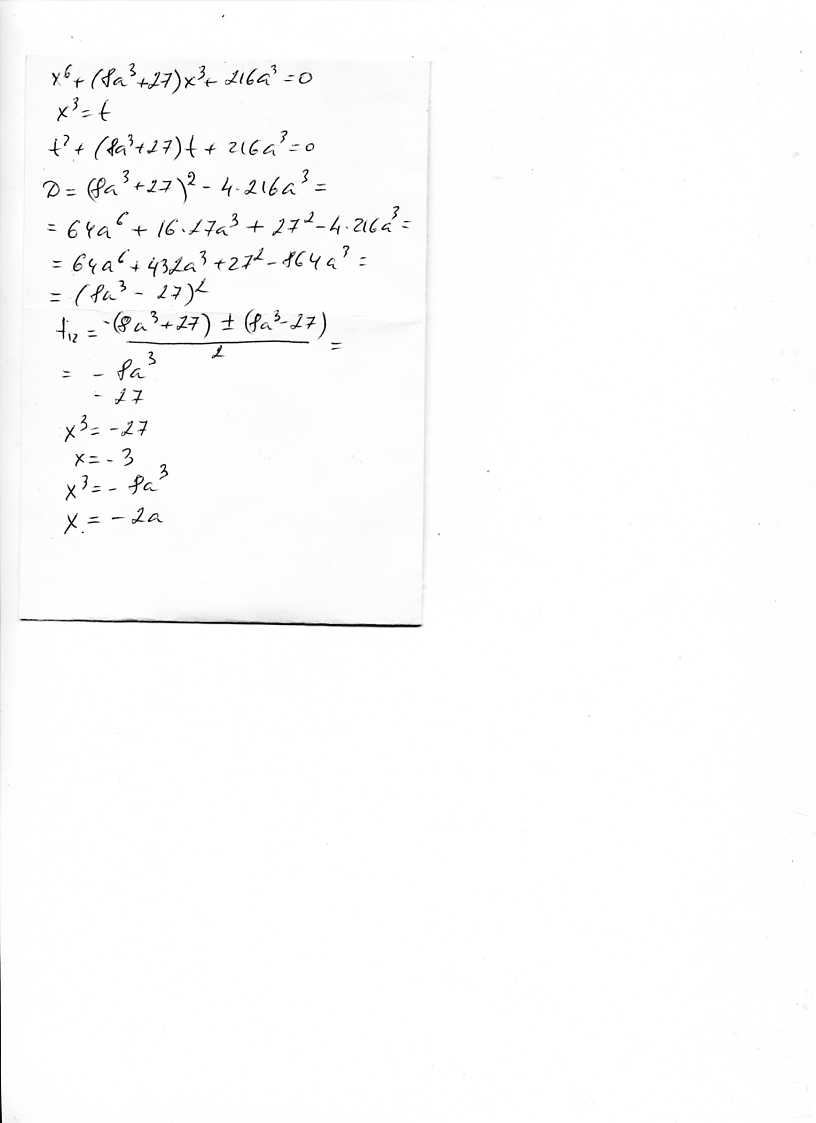 x⁶ + (8a³+27)x³ + 216a³ = 0
x³ = t
t² + (8a³+27)t + 216a³ = 0
D = (8a³+27)² - 4·216a³ =
= 64a⁶ + 16·27a³ + 27² - 4·216a³ =
= 64a⁶ + 432a³ + 27² - 864a³ =
= (8a³ - 27)²
t₁₂ = (-(8a³+27) ± (8a³-27))/2 =
= - 8a³
- 27
x³ = -27
x = - 3
x³ = - 8a³
x = - 2a